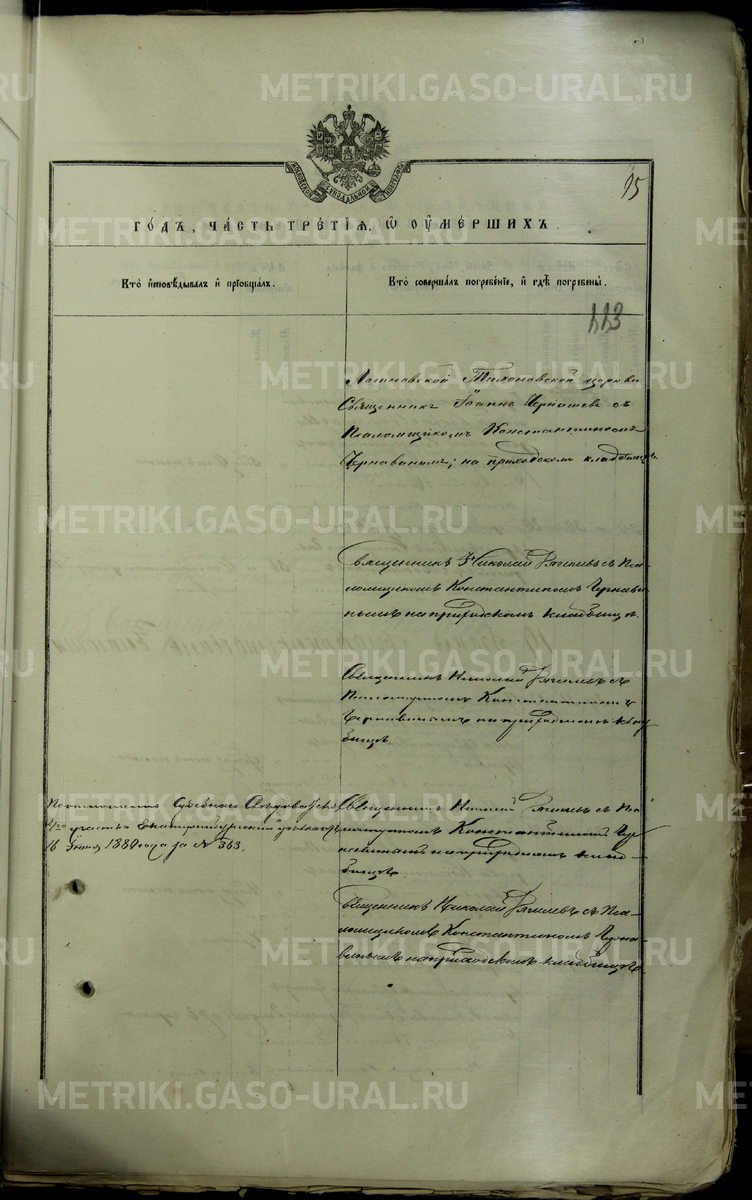 METRIKI.GASO-URAL.RU
95
ГОДЪ, ЧАСТЬ ТРЕТІЯ, Ѡ ОУМЕРШИХЪ.
Кто исповѣдывалъ и пріобщалъ.
Кто совершалъ погребеніе, и гдѣ погребены.
113
Логиновской Тихоновской церкви
Священникъ Іоаннъ Чернышевъ съ
Псаломщикомъ Константиномъ
Чернавинымъ; на приходскомъ кладбищѣ
Священникъ Николай съ Пса-
ломщикомъ Константиномъ Чернави-
нымъ на приходскомъ кладбищѣ.
Священникъ Николай съ
Псаломщикомъ Константиномъ
Чернавинымъ на приходскомъ клад-
бищѣ.
По отношенію Судебнаго Слѣдователя
4го участка Екатеринбургскаго уѣзда отъ
16 Іюня 1880 года за № 363.
Священникъ Николай съ Пса-
ломщикомъ Константиномъ Чер-
навинымъ на приходскомъ клад-
бищѣ.
Священникъ Николай съ Пса-
ломщикомъ Константиномъ Черна-
винымъ на приходскомъ кладбищѣ